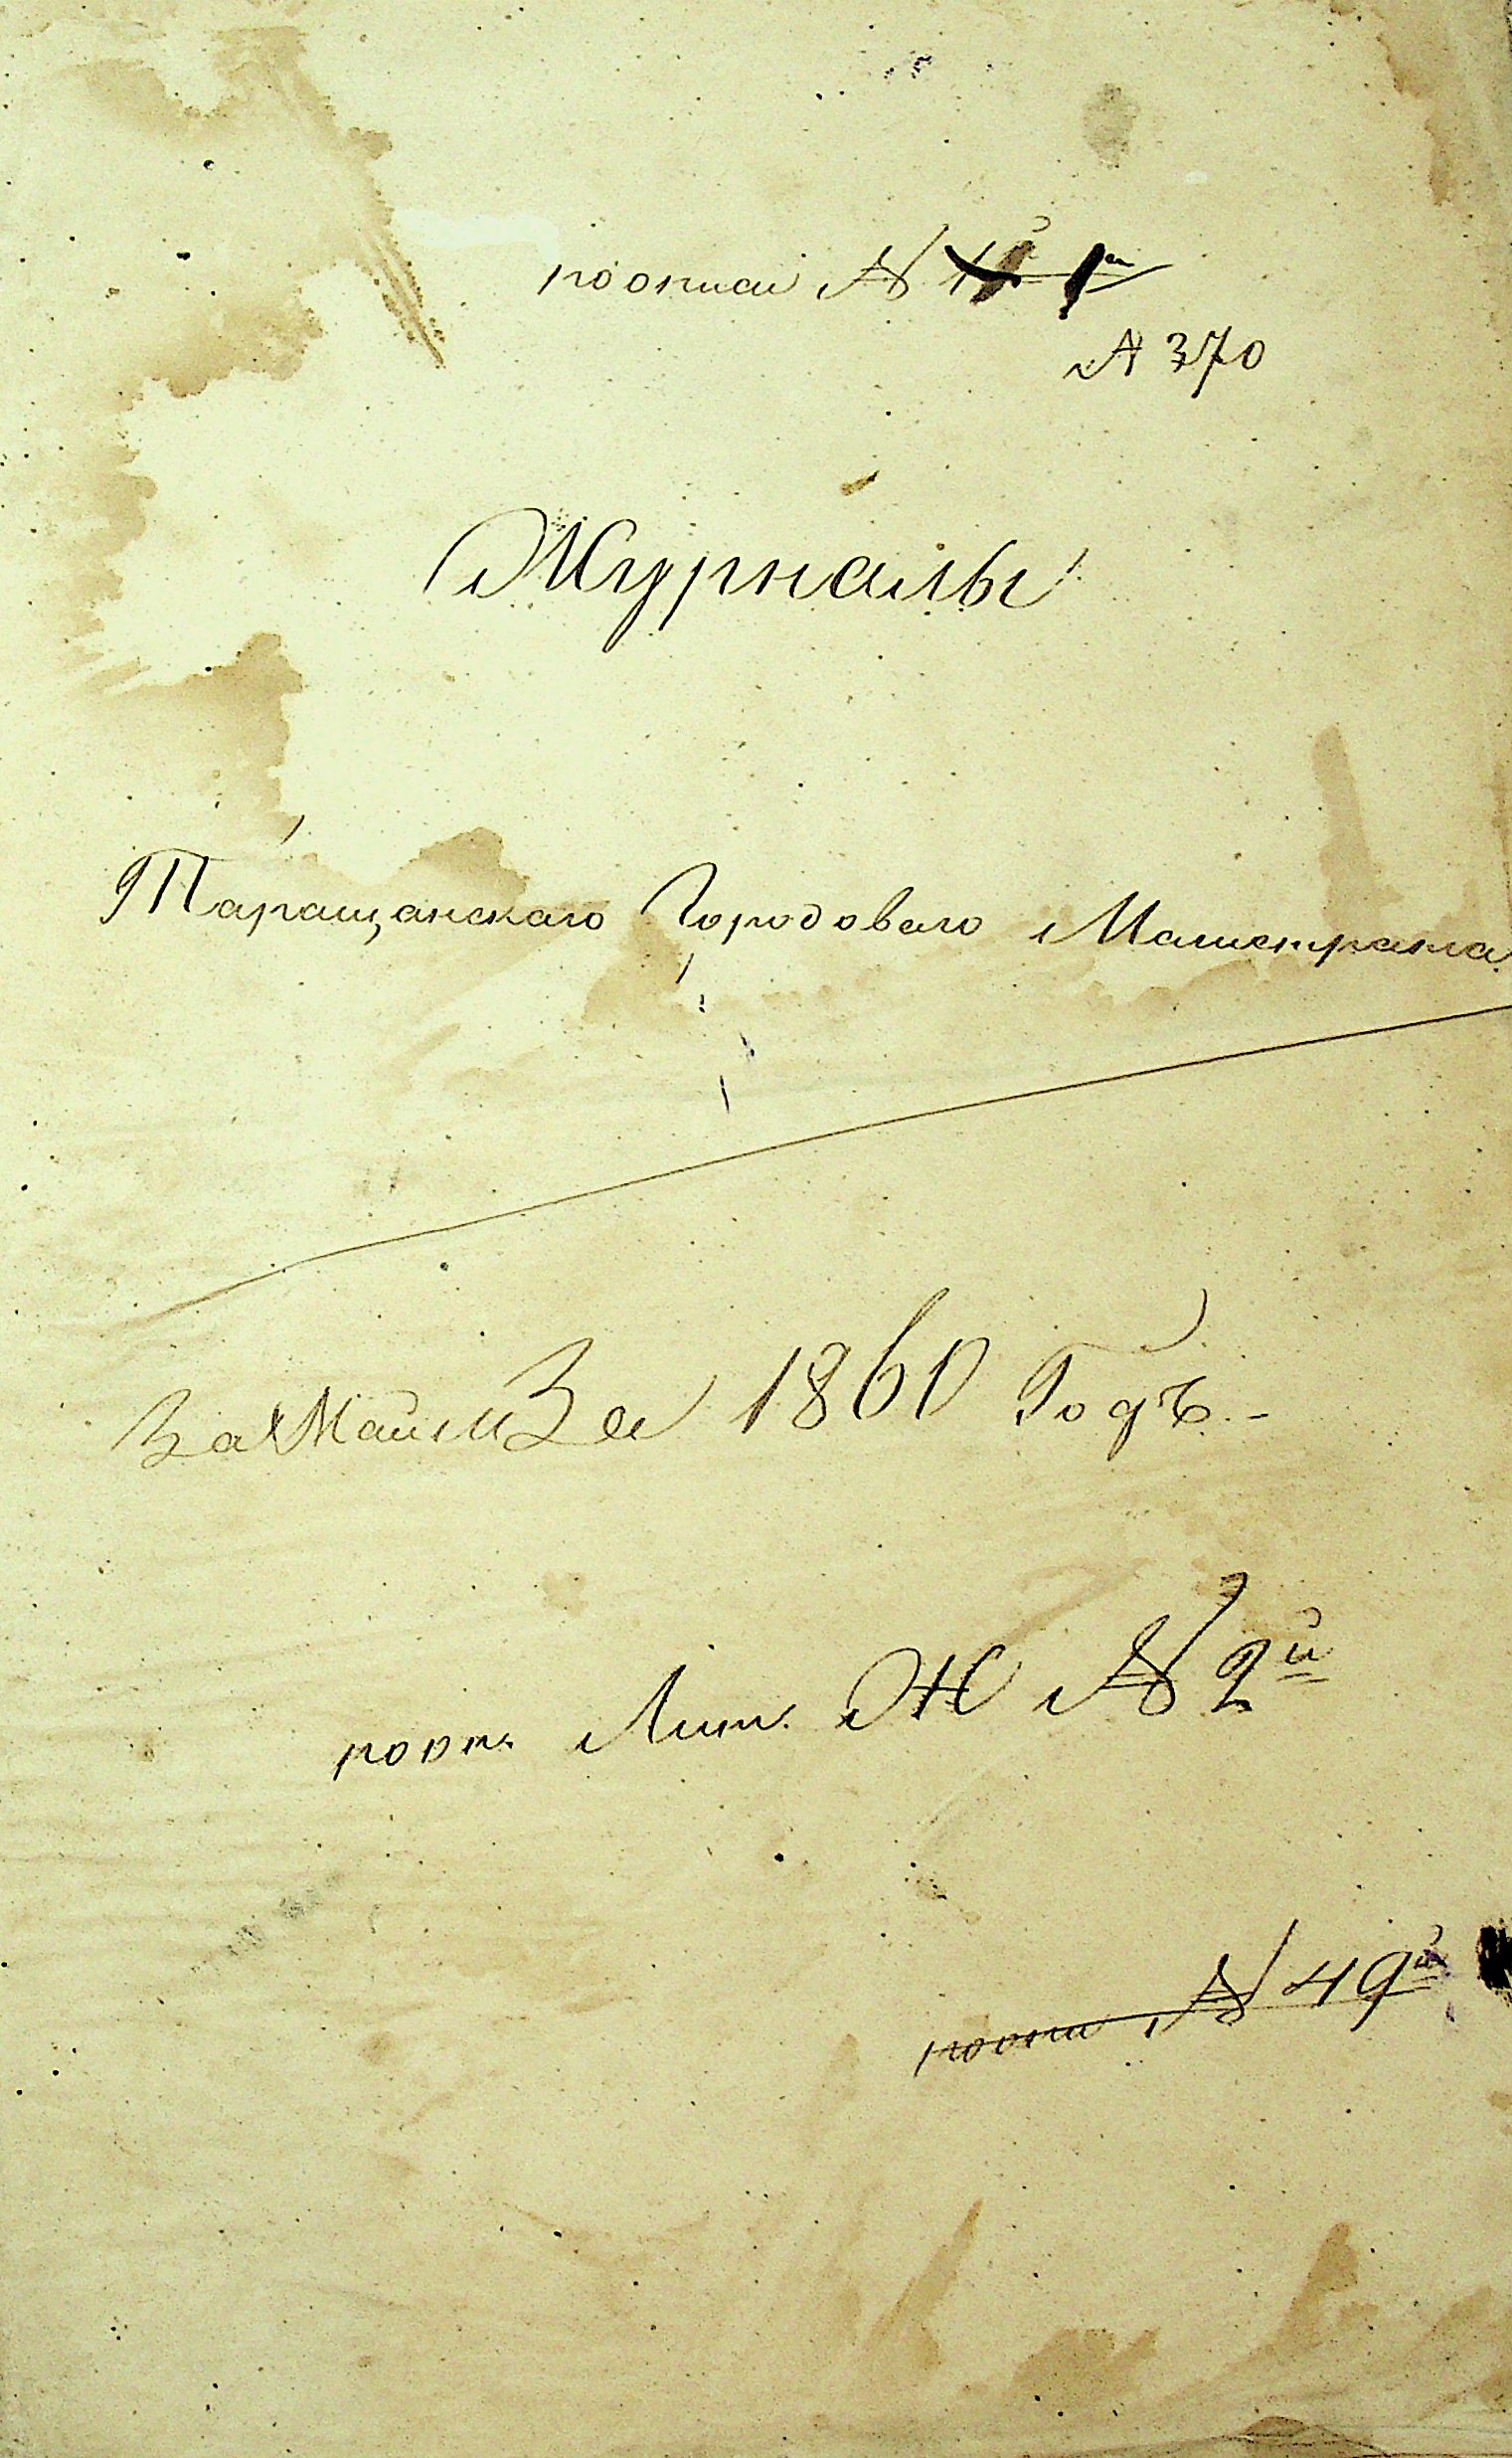 по описи № 1й
№ 370
Журналы
Таращанскаго Городоваго Магистрата
За Май мЗа 1860 Годъ.-
по оп. Лит. Ж № 2й
по опи № 49й